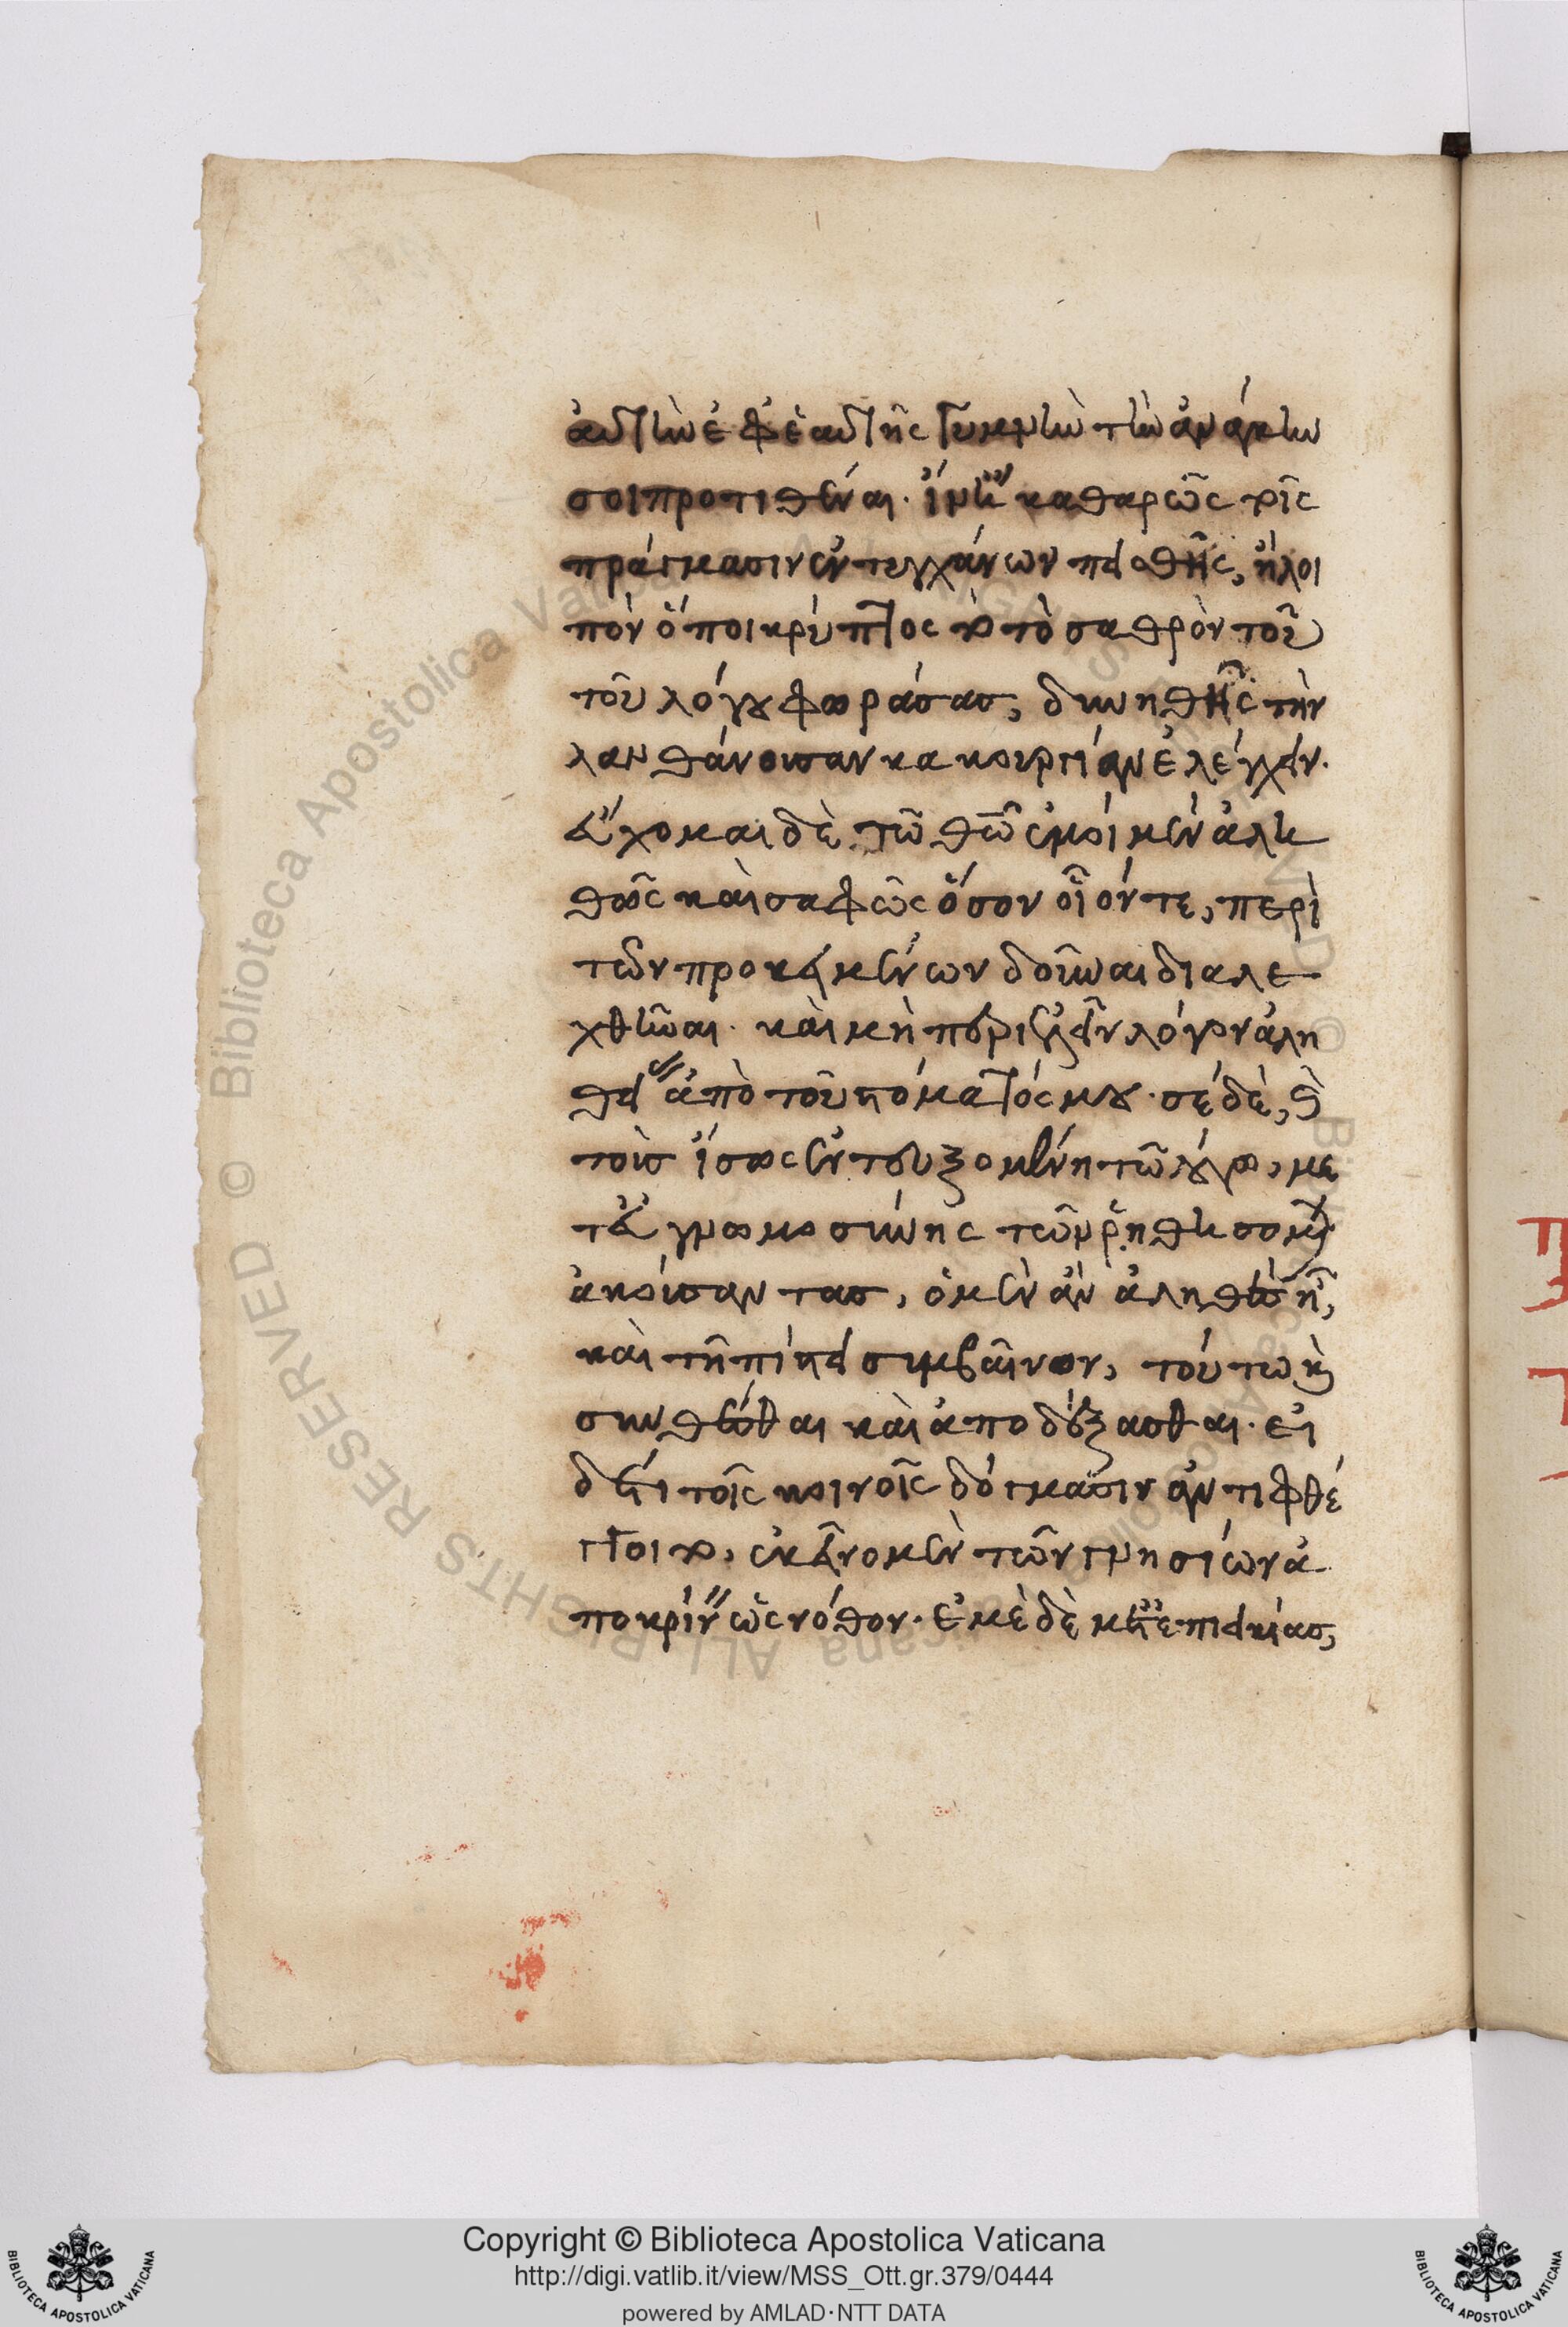 αὐτὴν ἐφ' ἑαυτῆς γυμνὴν τὴν ἀνάγκην
σοι προτιθέναι. ἵν' ἢ καθαρῶς τοῖς
πράγμασιν ἐντυγχάνων πεισθῇς, ἢ λοι
πὸν ὅποι κρύπτοιτο τὸ σαθρὸν τοῦ
τοῦ λόγου φωράσας, δυνηθῇς τὴν
λανθάνουσαν κακουργίαν ἐλέγχειν.
εὔχομαι δὲ τῷ θεῷ ἐμοὶ μὲν ἀλη
θῶς καὶ σαφῶς ὅσον οἷόν τε, περὶ
τῶν προκειμένων δοῦναι διαλε
χθῆναι. καὶ μὴ περιελεῖν λόγον ἀλη
θείας ἀπὸ τοῦ στόματός μου. σὲ δὲ, καὶ
τοὺς ἴσως ἐντευξομένους τῷ λόγῳ, με
τ' εὐγνωμοσύνης τῶν ῥηθησομένων
ἀκούσαντας, ὃ μὲν ἂν ἀληθὲς ᾖ,
καὶ τῇ πίστει συμβαῖνον, τούτῳ καὶ
συνθέσθαι καὶ ἀποδέξασθαι. εἰ
δέ τι τοῖς κοινοῖς δόγμασιν ἀντιφθέγ
γοιτο, ἐκεῖνο μὲν τῶν γνησίων ἀ
ποκρίνειν ὡς νόθον. ἐμὲ δὲ μετ' ἐπιεικείας,
Copyright © Biblioteca Apostolica Vaticana
http://digi.vatlib.it/view/MSS_Ott.gr.379/0444
powered by AMLAD·NTT DATA
BIBLIOTECA APOSTOLICA VATICANA
BIBLIOTECA APOSTOLICA VATICANA